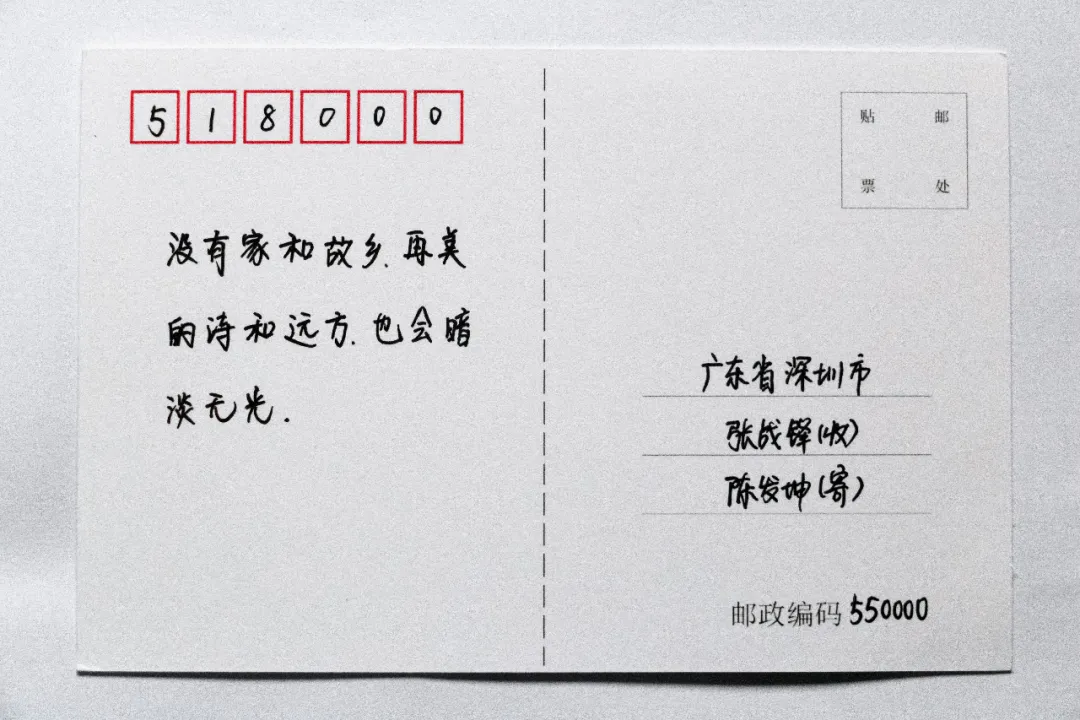 518000
没有家和故乡,再美
的诗和远方,也会暗
淡无光.
贴 邮
票 处
广东省深圳市
张战铎(收)
陈发坤(寄)
邮政编码 550000